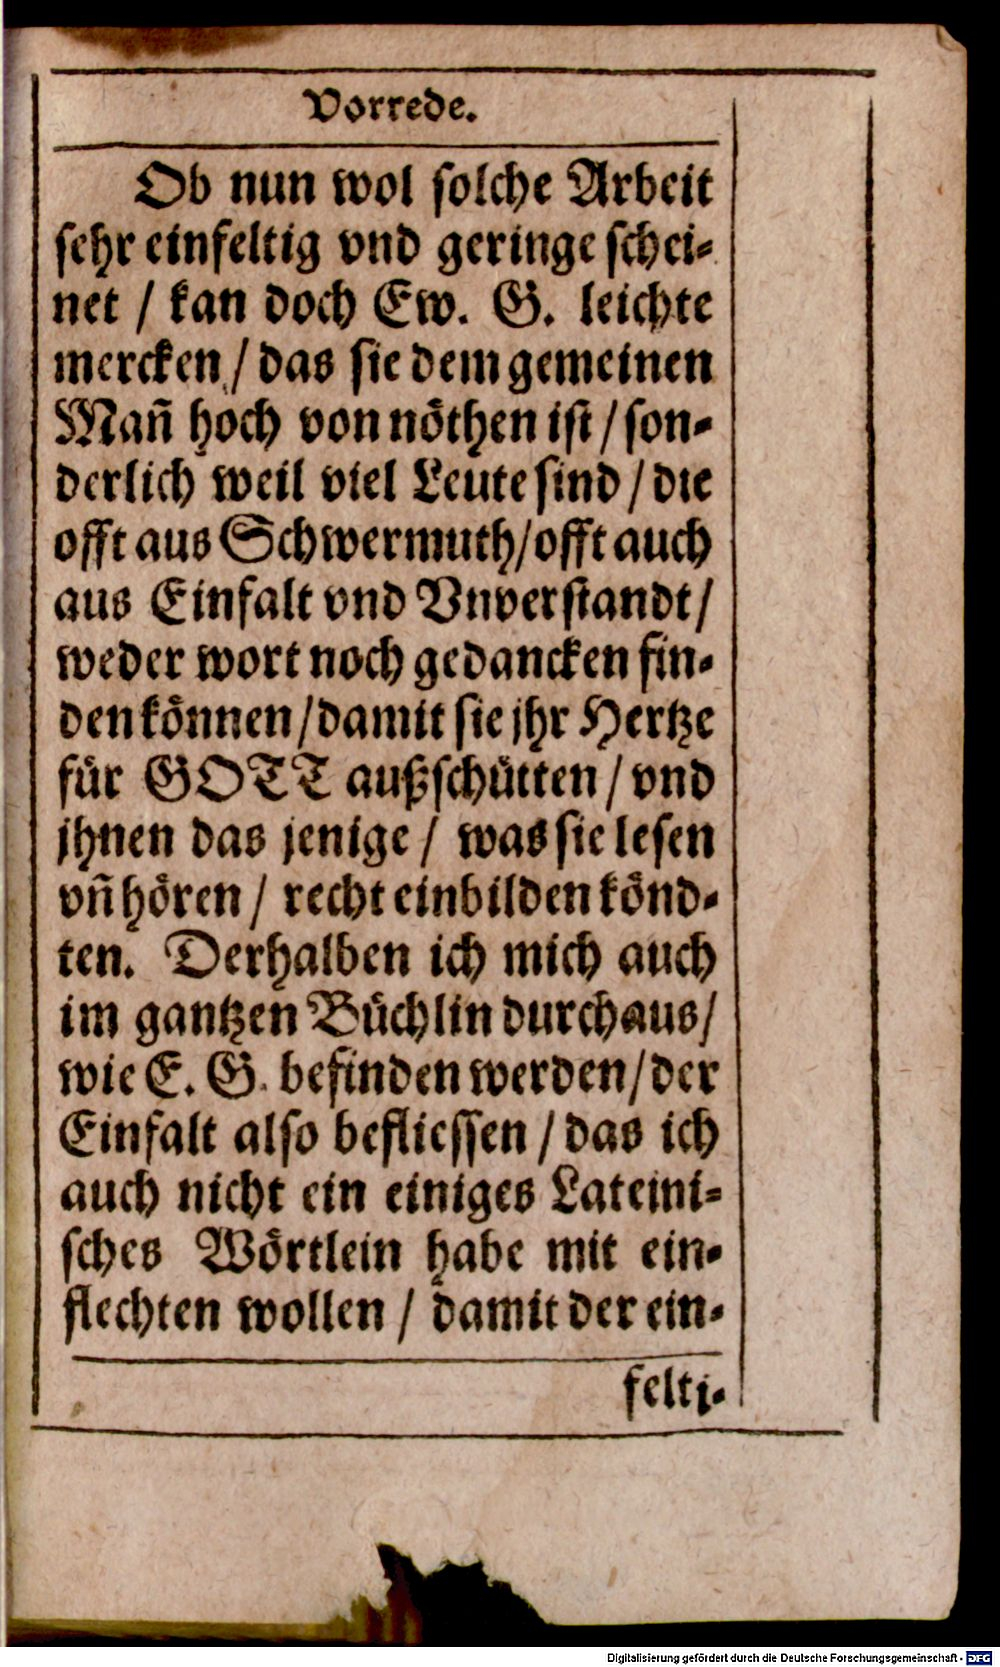 Vorrede.
Ob nun wol solche Arbeit
sehr einfeltig vnd geringe schei-
net / kan doch Ew. G. leichte
mercken / das sie dem gemeinen
Mañ hoch von nöthen ist / son-
derlich weil viel Leute sind / die
offt aus Schwermuth / offt auch
aus Einfalt vnd Vnverstandt /
weder wort noch gedancken fin-
den können / damit sie jhr Hertze
für GOTT außschütten / vnd
jhnen das jenige / was sie lesen
vñ hören / recht einbilden könd-
ten. Derhalben ich mich auch
im gantzen Büchlin durchaus /
wie E. G. befinden werden / der
Einfalt also befliessen / das ich
auch nicht ein einiges Lateini-
sches Wörtlein habe mit ein-
flechten wollen / damit der ein-
felti-
Digitalisierung gefördert durch die Deutsche Forschungsgemeinschaft - DFG